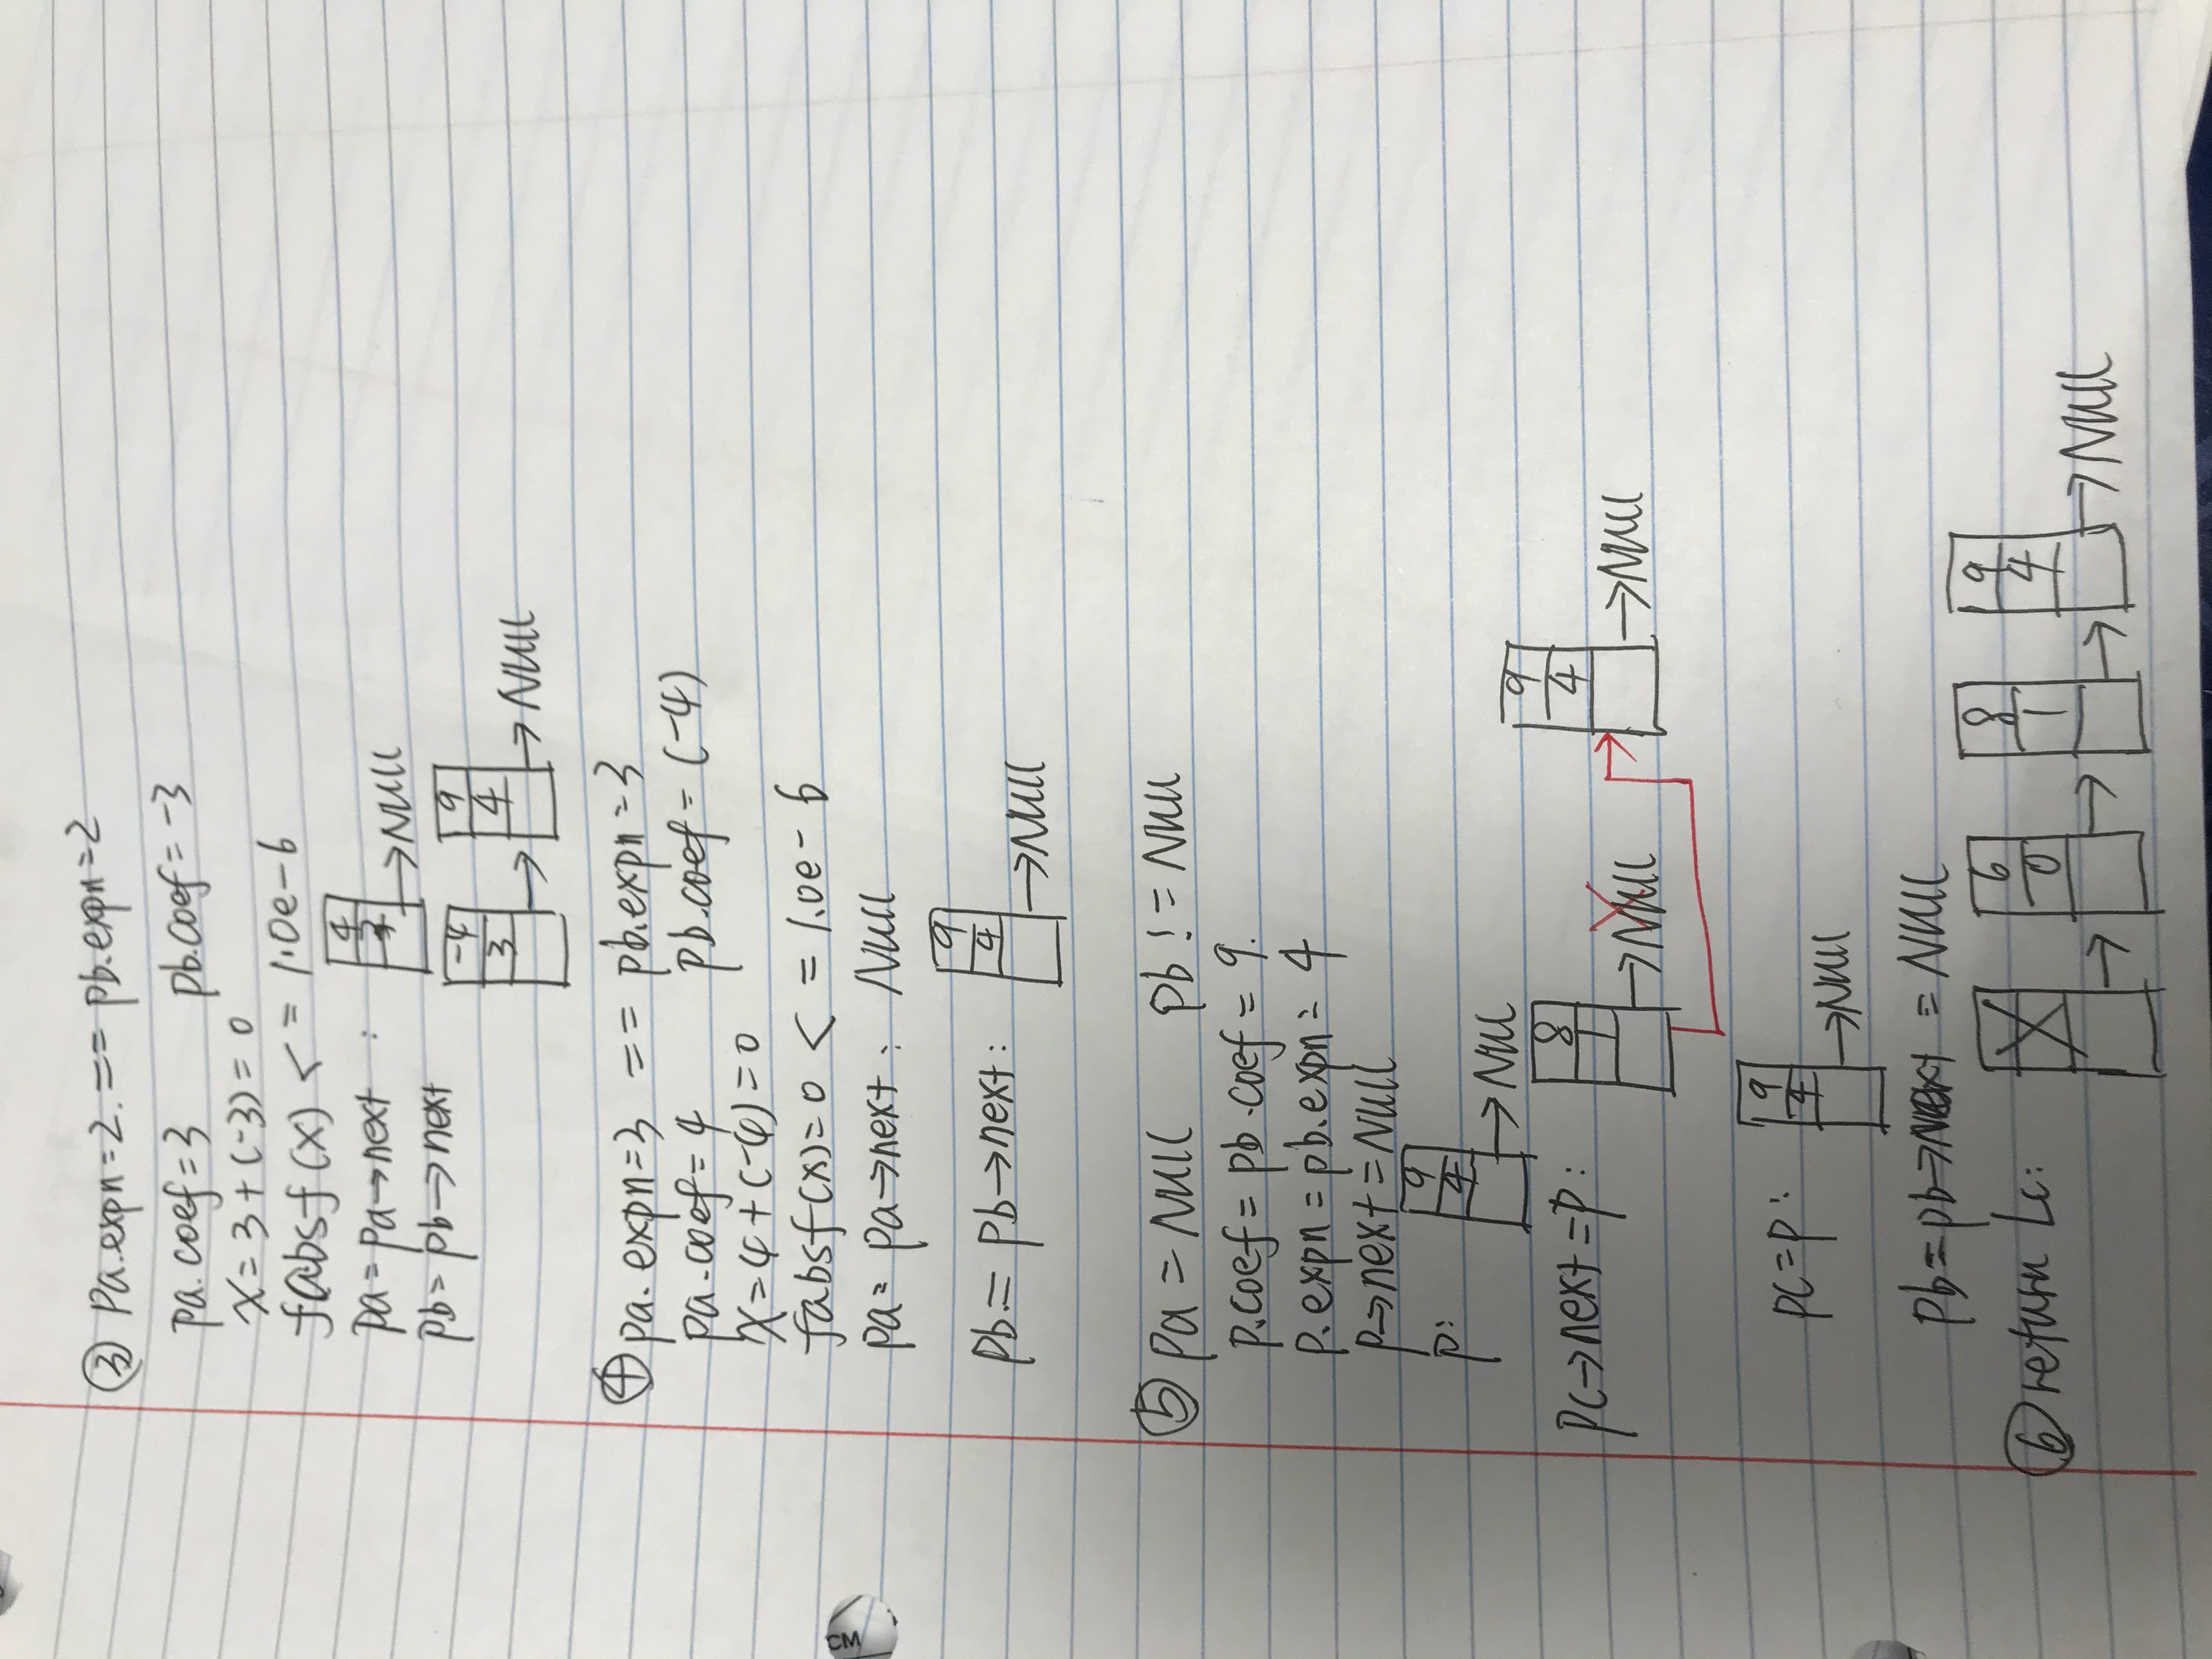 ③ Pa.expn=2. == pb.expn=2
pa.coef=3 pb.coef=-3
x=3+(-3)=0
fabsf(x) <= 1.0e-6
pa=pa→next :
4
→Null
pb=pb→next
-4 9
3 4
→ →Null
④ pa.expn=3 == pb.expn=3
pa.coef=4 pb.coef=(-4)
x=4+(-4)=0
fabsf(x)=0 <= 1.0e-6
pa=pa→next: Null
pb:=pb→next:
9
4
→Null
⑤ pa=Null pb!=Null
p.coef=pb.coef=9.
p.expn=pb.expn=4
p→next=Null
p:
9
4
→Null
pc→next=p:
8 9
1 4
→Null →Null
pc=p:
9
4
→Null
pb=pb→next=Null
⑥ return Lc:
6 8 9
0 1 4
→ → → →Null
CM